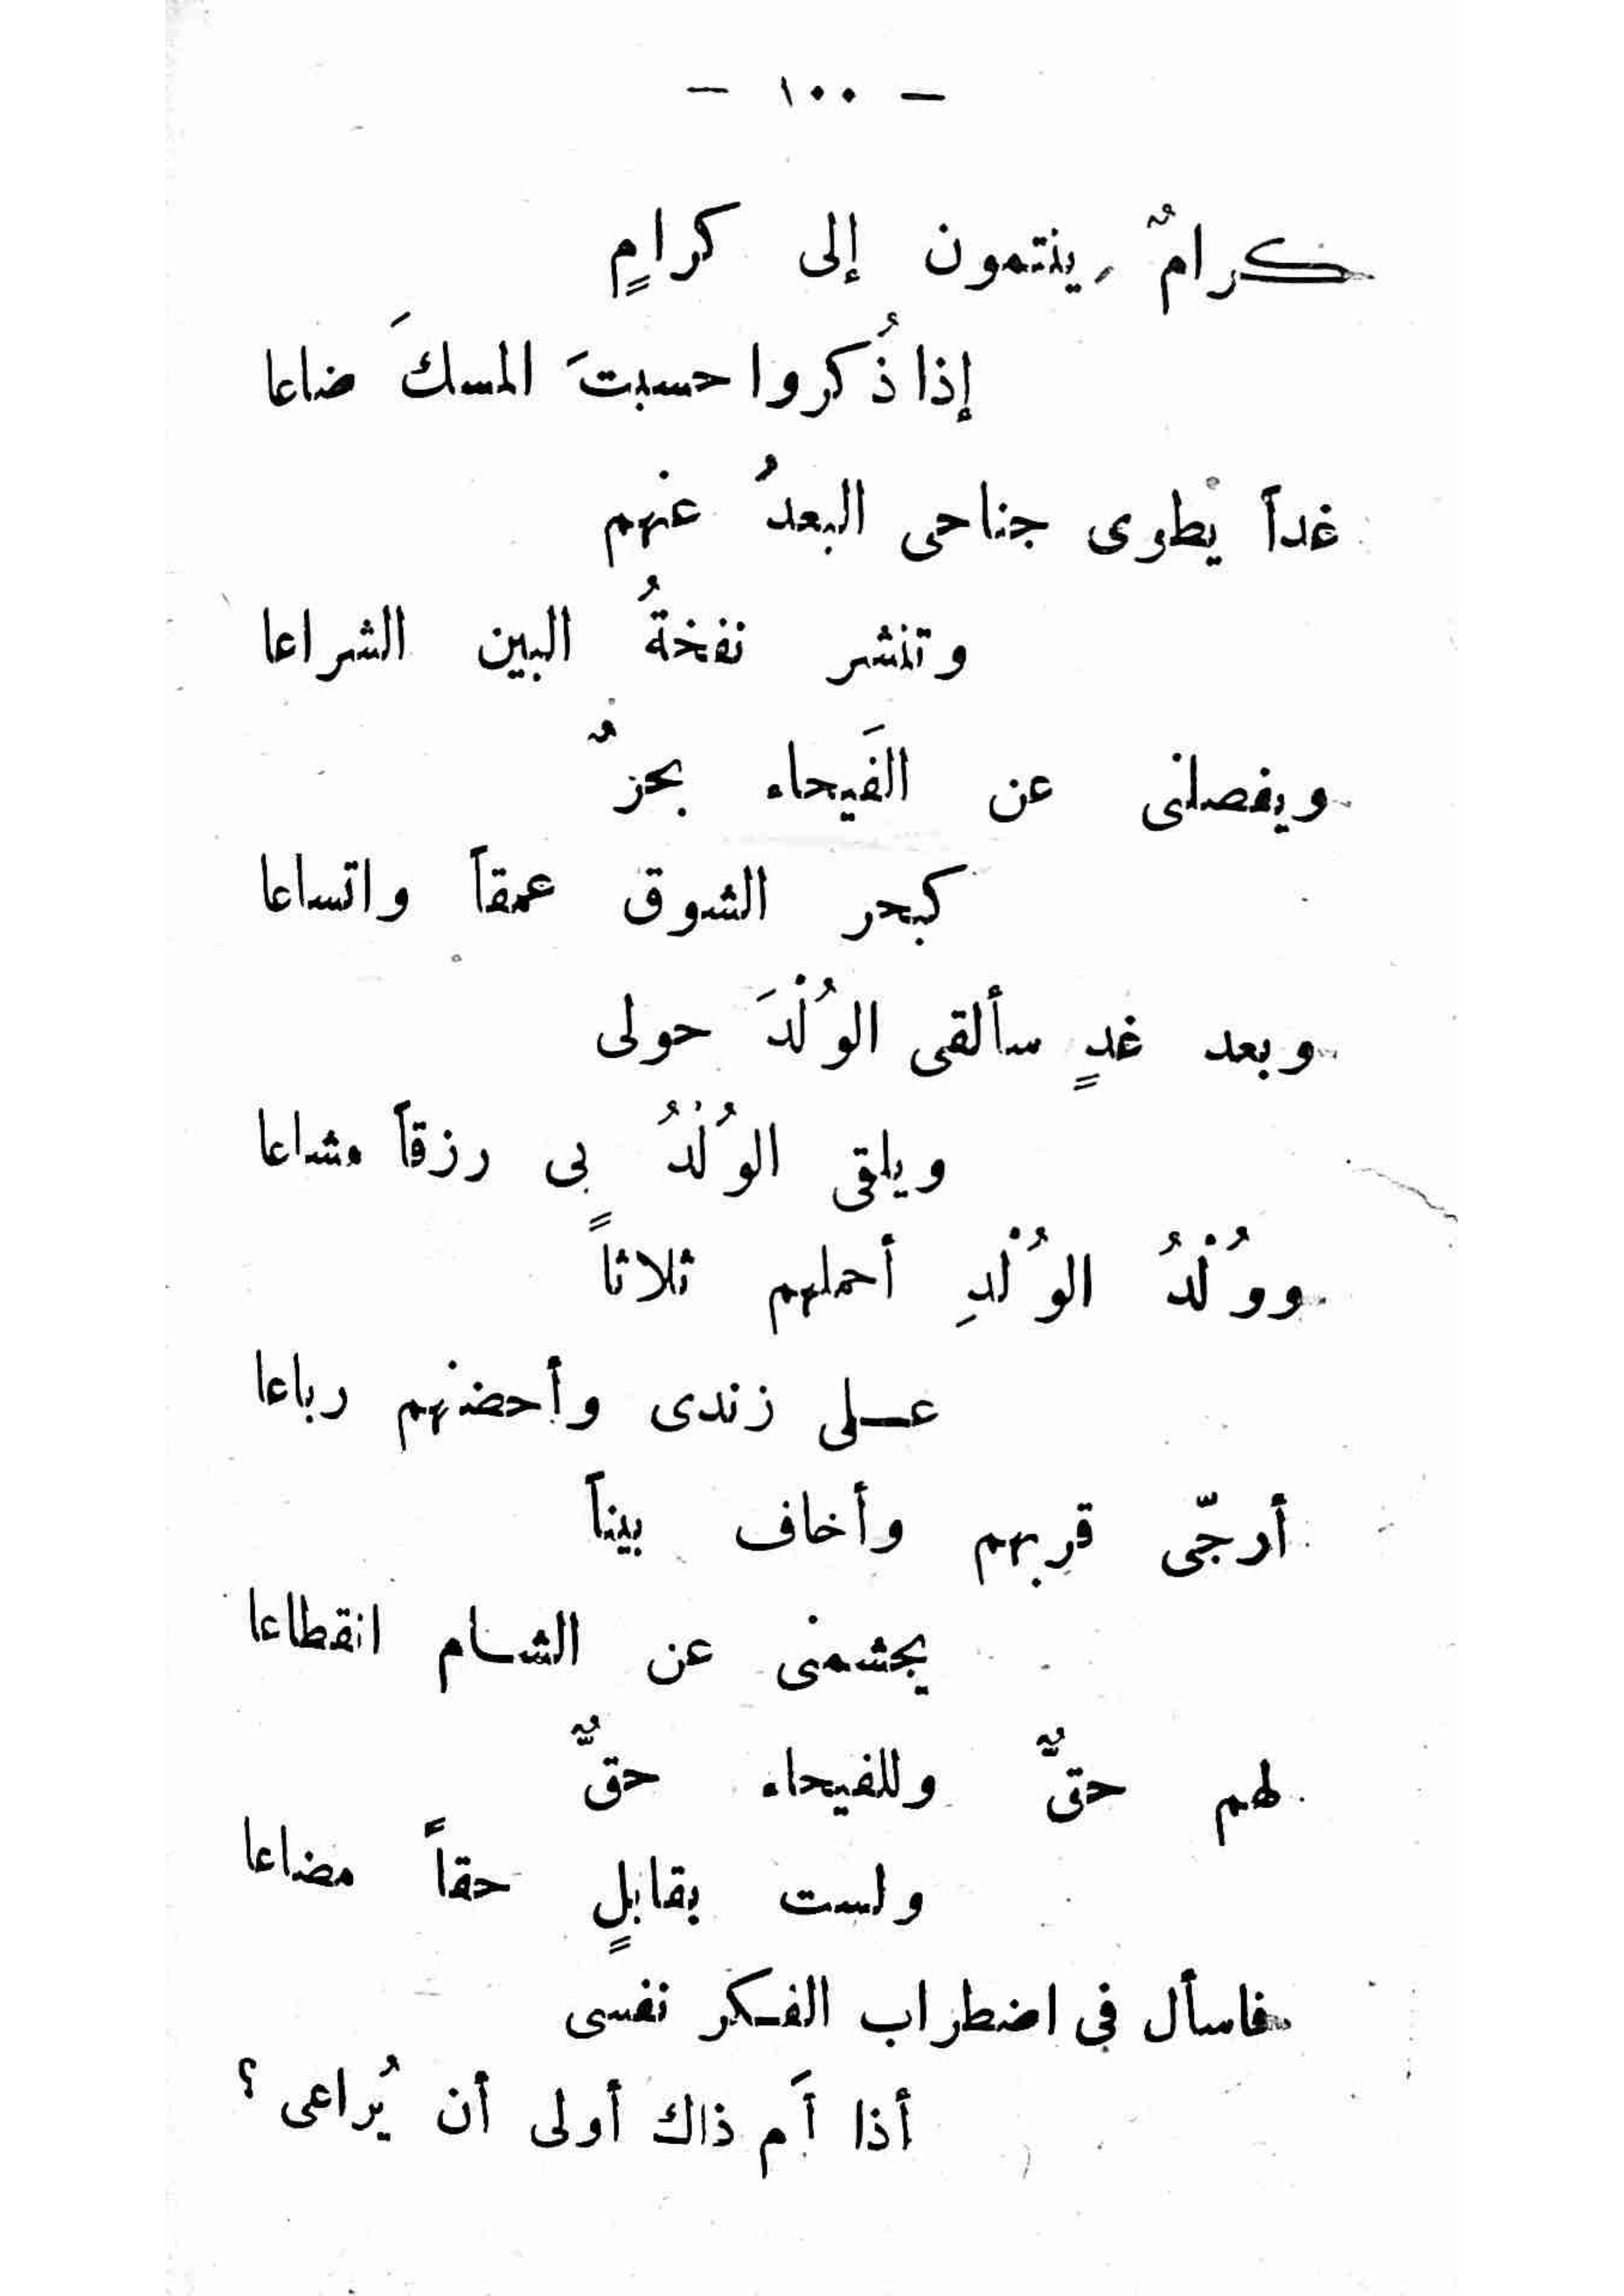 — ١٠٠ —
كرامٌ ينتمون إلى كرامٍ
إذا ذُكروا حسبتَ المسكَ ضاعا
غداً يطوى جناحى البعدُ عنهم
وتنشر نفخةُ البين الشراعا
ويفصلنى عن الفَيحاء بحرٌ
كبحر الشوق عمقاً واتساعا
وبعد غدٍ سألقى الوُلْدَ حولى
ويلقى الوُلْدُ بى رزقاً مشاعا
ووُلْدُ الوُلْدِ أحملهم ثلاثاً
عـلى زندى وأحضنهم رباعا
أرجّى قربهم وأخاف بيناً
يجشمنى عن الشـام انقطاعا
لهم حقٌّ وللفيحاء حقٌّ
ولست بقابلٍ حقاً مضاعا
فاسأل فى اضطراب الفـكر نفسى
أذا أَم ذاك أولى أن يُراعى ؟